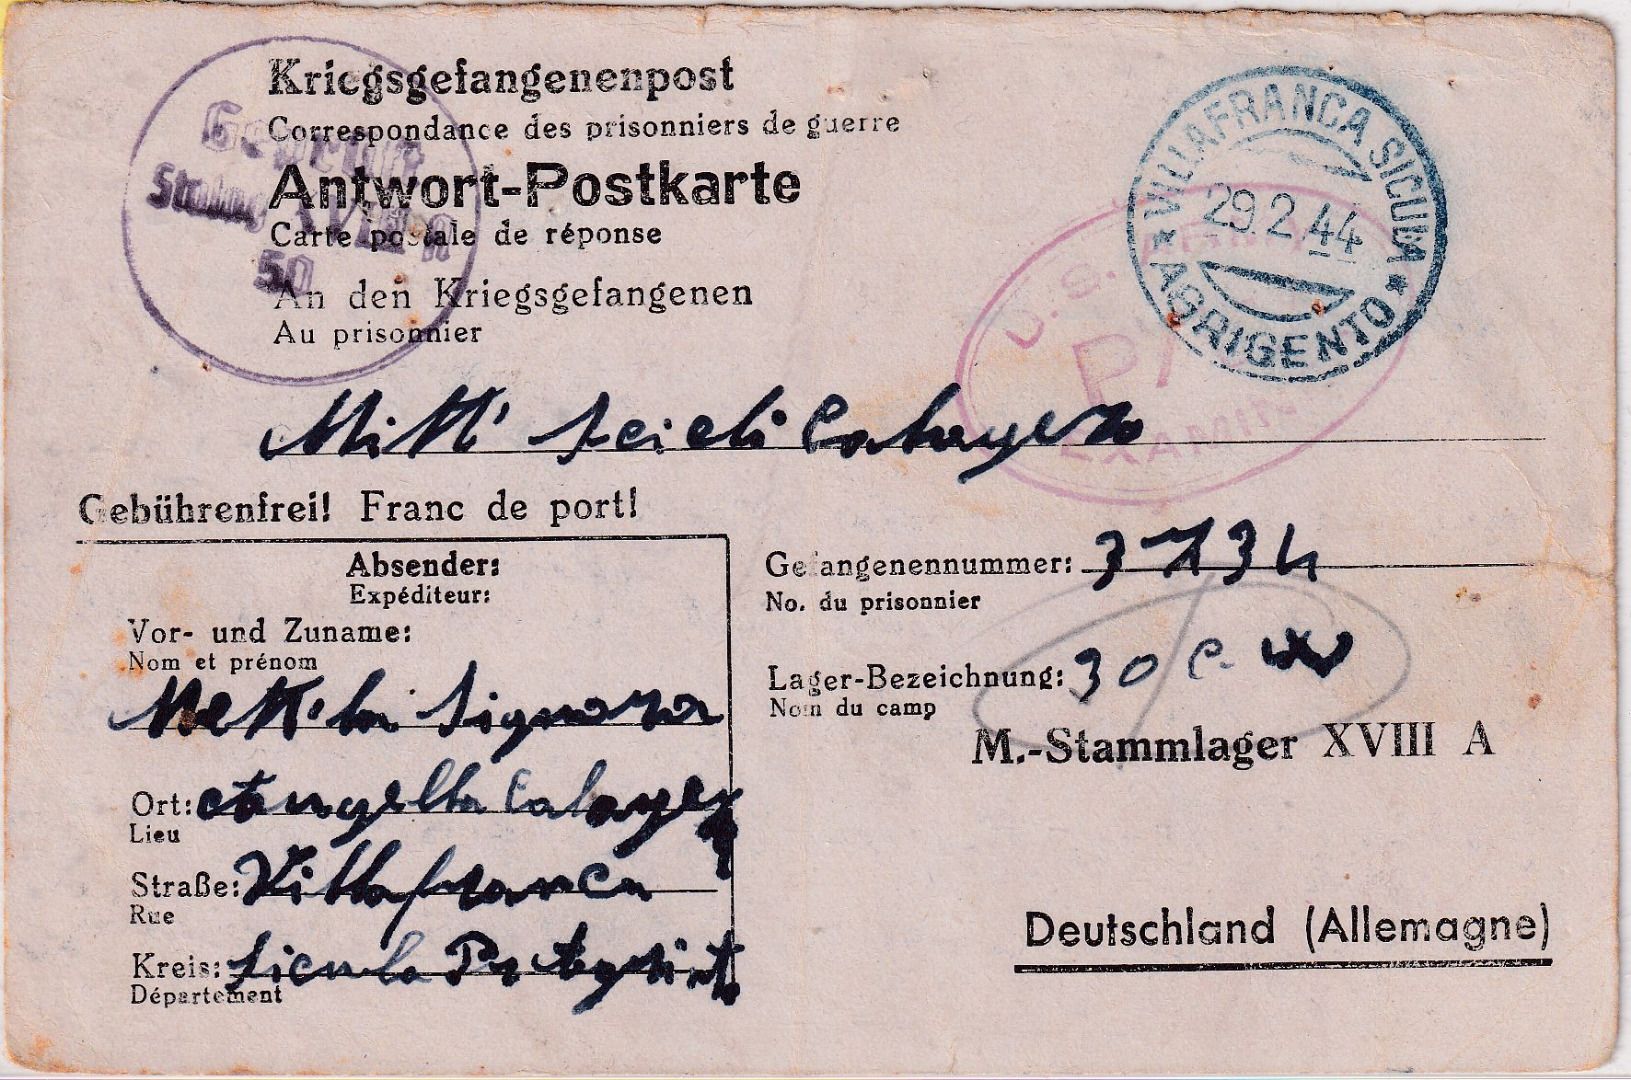 Kriegsgefangenenpost
Correspondance des prisonniers de guerre
Antwort-Postkarte
Carte postale de réponse
An den Kriegsgefangenen
Au prisonnier
Geprüft
Stalag XVIII A
50
VILLAFRANCA SICULA
29.2.44
AGRIGENTO
U.S.
EXAMIN
Gebührenfrei! Franc de port!
Absender:
Expéditeur:
Vor- und Zuname:
Nom et prénom
Signora
Ort:
Lieu
Straße: Villafranca
Rue
Kreis: Sicula
Département
Gefangenennummer: 3734
No. du prisonnier
Lager-Bezeichnung: 30
Nom du camp
M.-Stammlager XVIII A
Deutschland (Allemagne)